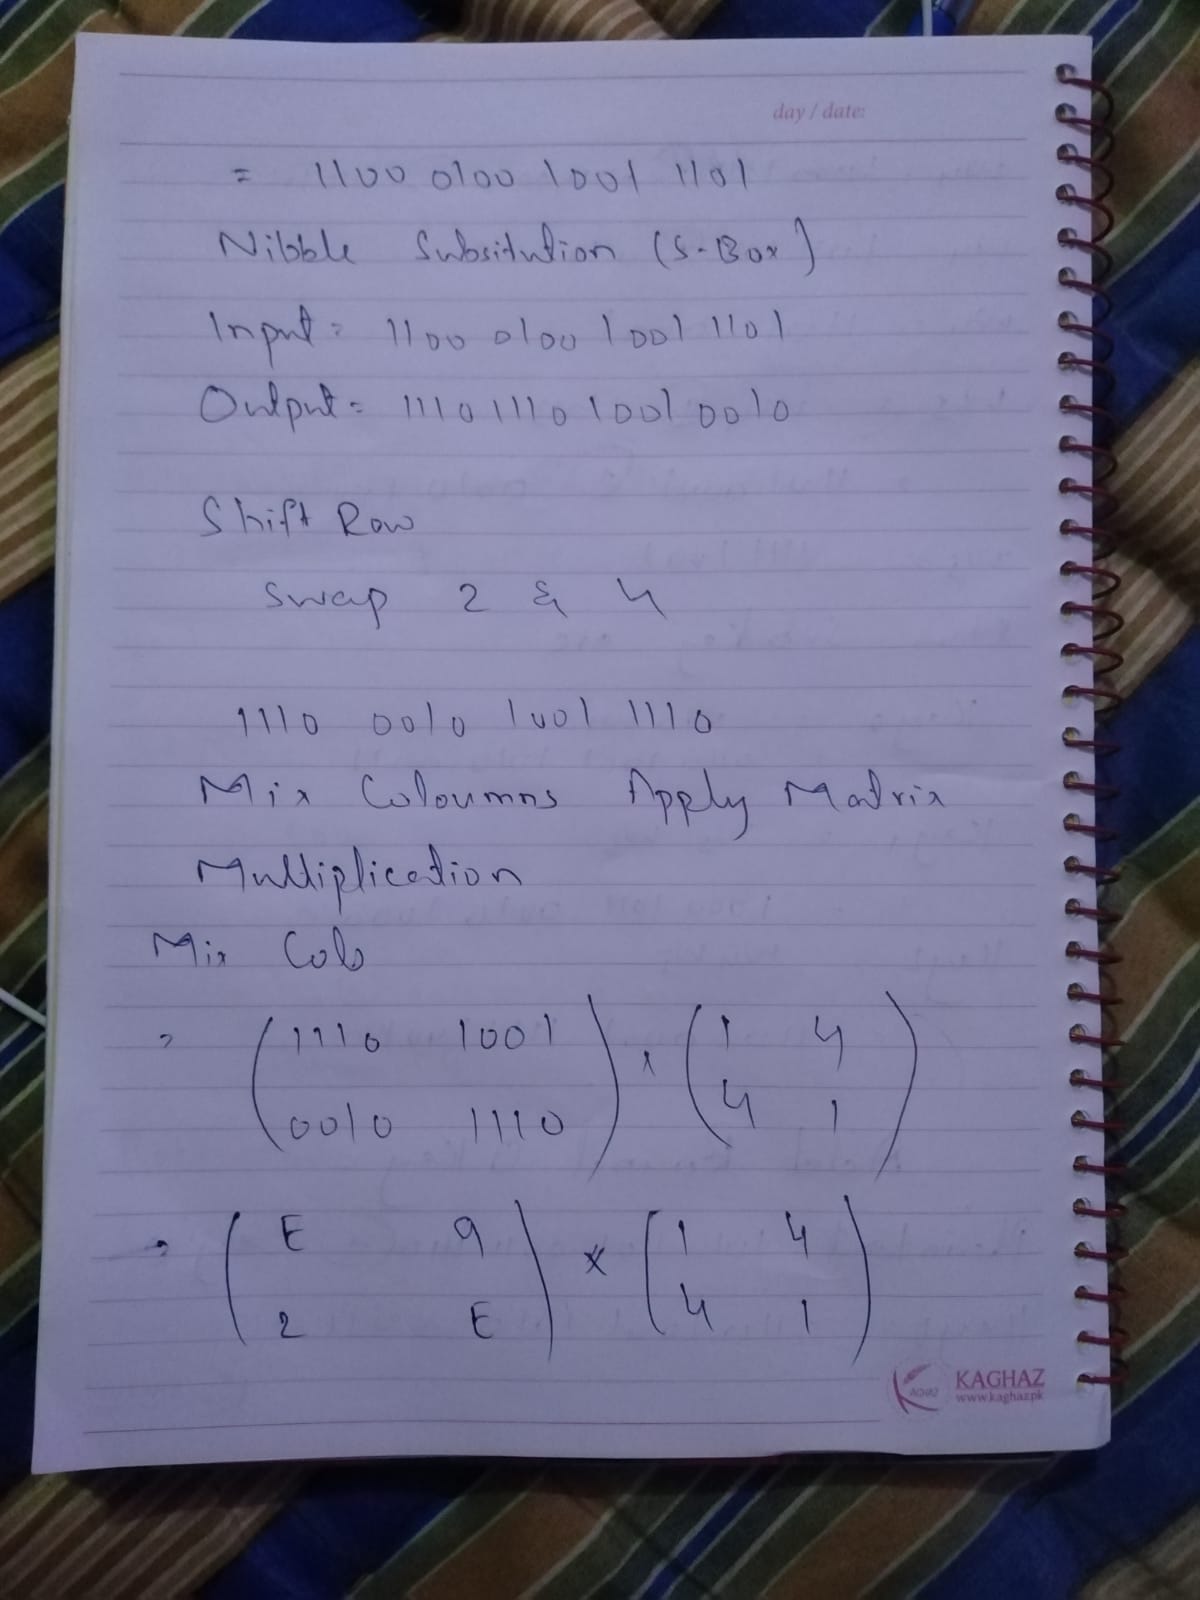 day / date:
= 1100 0100 1001 1101
Nibble Subsitution (S-Box)
Input = 1100 0100 1001 1101
Output = 1110 1110 1001 0010
Shift Row
Swap 2 & 4
1110 0010 1001 1110
Mix Coloumns Apply Matrix
Multiplication
Mix Cols
= (1110 1001) x (1 4)
(0010 1110) (4 1)
= (E 9) x (1 4)
(2 E) (4 1)
KAGHAZ
www.kaghaz.pk